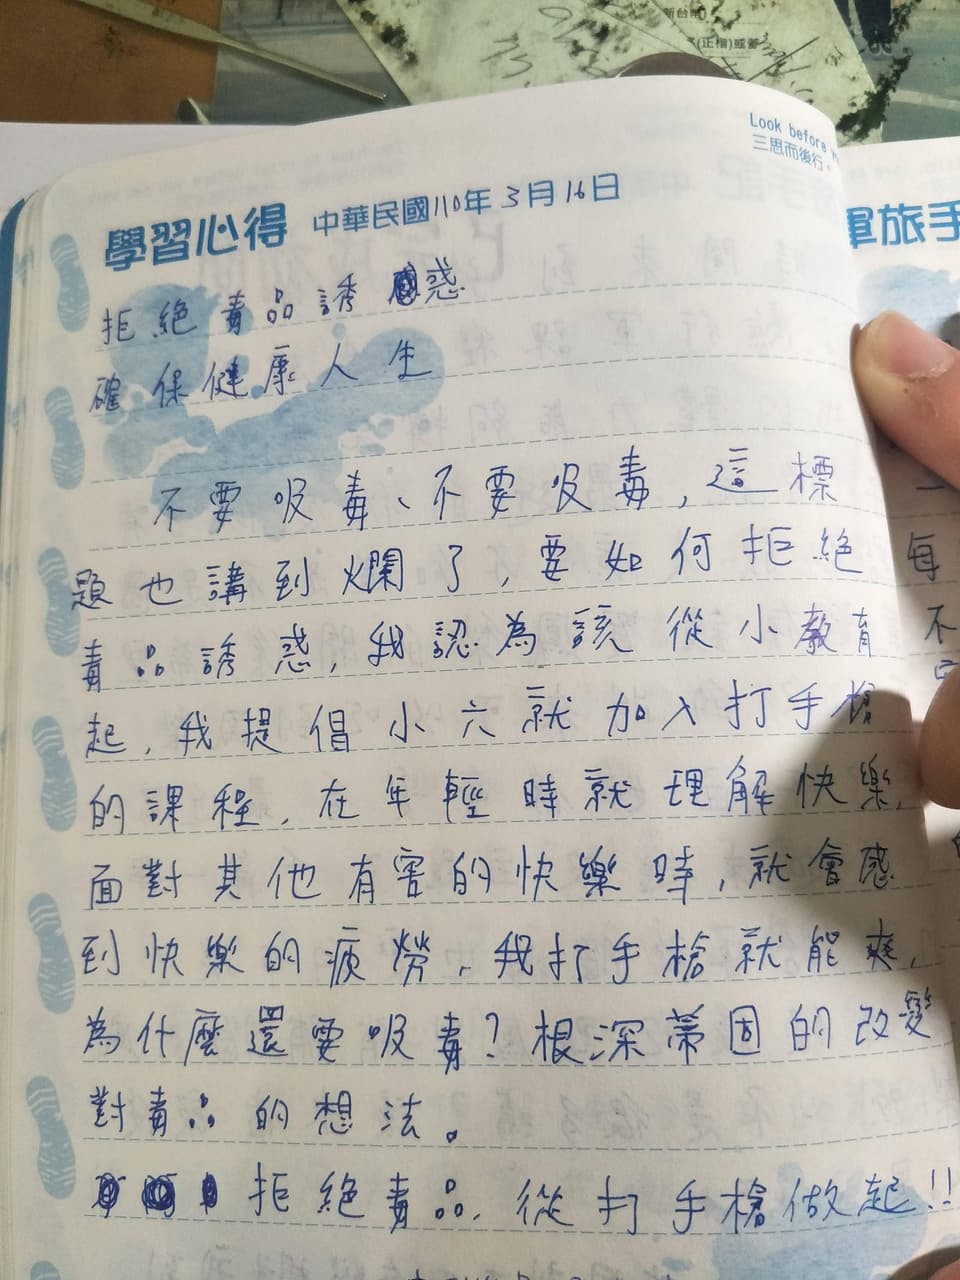 新台幣
(正楷)或蓋
Look before
三思而後行。
學習心得 中華民國110年3月16日
軍旅手
拒絕毒品誘惑
確保健康人生
不要吸毒、不要吸毒,這標
題也講到爛了,要如何拒絕
毒品誘惑,我認為該從小教育
起,我提倡小六就加入打手槍
的課程,在年輕時就理解快樂,
面對其他有害的快樂時,就會感
到快樂的疲勞,我打手槍就能爽,
為什麼還要吸毒?根深蒂固的改變
對毒品的想法。
拒絕毒品,從打手槍做起!!
每
不